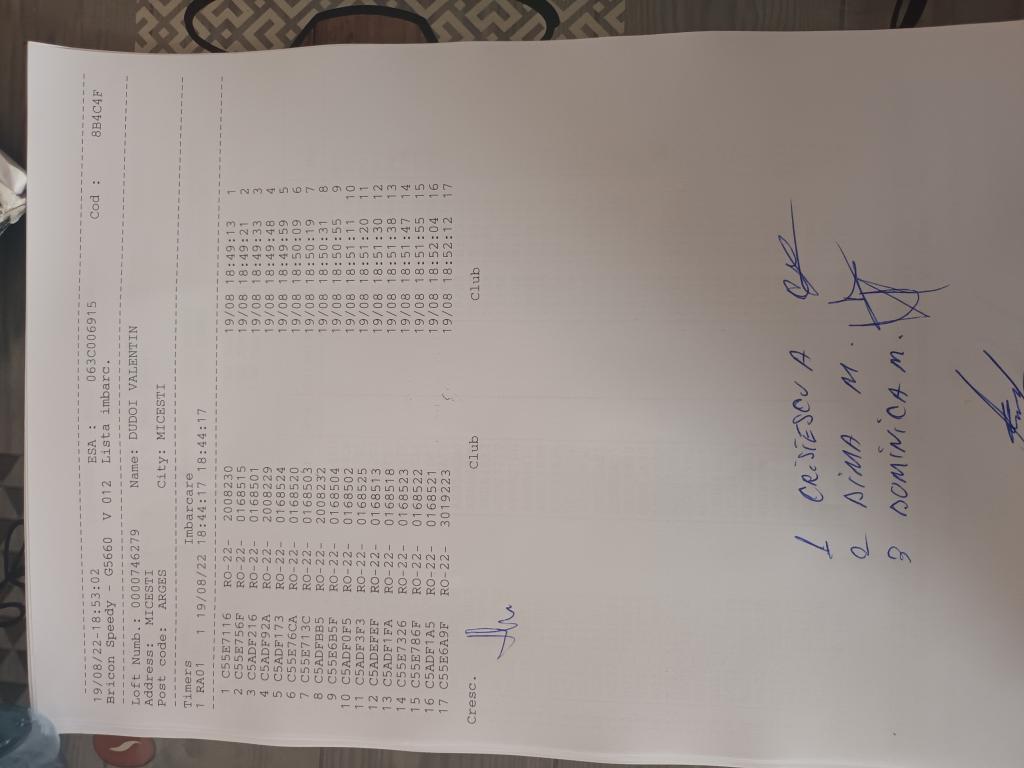 19/08/22-18:53:02 ESA : 063C006915 Cod : 8B4C4F
Bricon Speedy - G5660 V 012 Lista imbarc.
Loft Numb.: 0000746279 Name: DUDOI VALENTIN
Address: MICESTI
Post code: ARGES City: MICESTI
Timers Imbarcare
1 RA01 1 19/08/22 18:44:17 18:44:17
1 C55E7116 RO-22- 2008230 19/08 18:49:13 1
2 C55E756F RO-22- 0168515 19/08 18:49:21 2
3 C5ADF216 RO-22- 0168501 19/08 18:49:33 3
4 C5ADF92A RO-22- 2008229 19/08 18:49:48 4
5 C5ADF173 RO-22- 0168524 19/08 18:49:59 5
6 C55E76CA RO-22- 0168520 19/08 18:50:09 6
7 C55E713C RO-22- 0168503 19/08 18:50:19 7
8 C5ADFBB5 RO-22- 2008232 19/08 18:50:31 8
9 C55E6B5F RO-22- 0168504 19/08 18:50:55 9
10 C5ADF0F5 RO-22- 0168502 19/08 18:51:11 10
11 C5ADF3F3 RO-22- 0168525 19/08 18:51:20 11
12 C5ADEFEF RO-22- 0168513 19/08 18:51:30 12
13 C5ADF1FA RO-22- 0168518 19/08 18:51:38 13
14 C55E7326 RO-22- 0168523 19/08 18:51:47 14
15 C55E786F RO-22- 0168522 19/08 18:51:55 15
16 C5ADF1A5 RO-22- 0168521 19/08 18:52:04 16
17 C55E6A9F RO-22- 3019223 19/08 18:52:12 17
Cresc. Club Club
1 CRISTESCU A
2 DIMA M.
3 DOMINICA M.